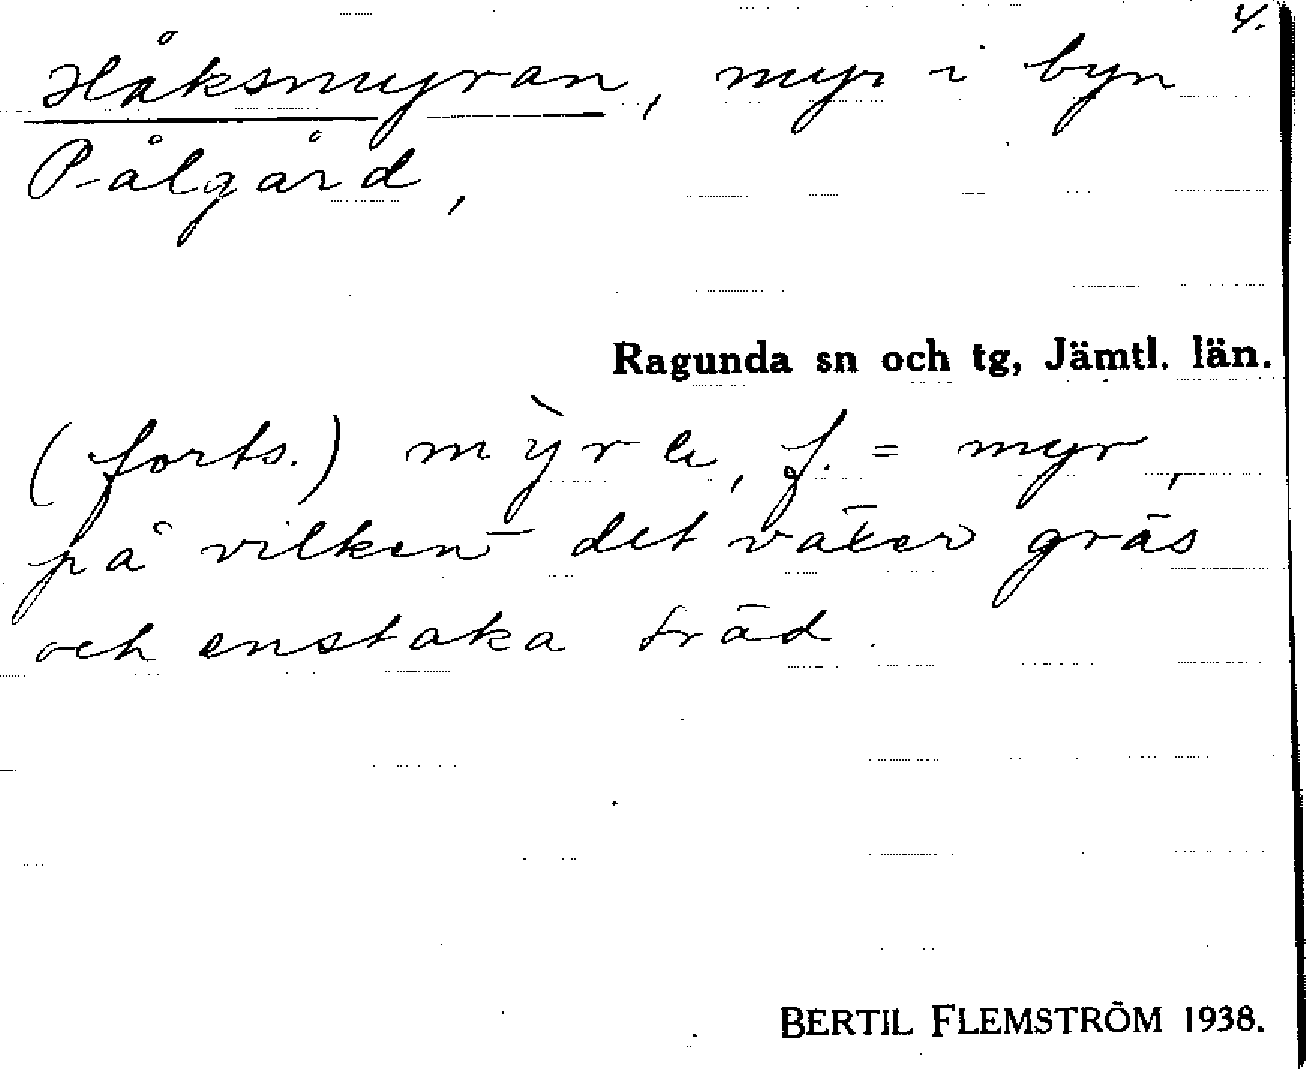 4.
Håksmyran, myr i byn
Pålgård,
Ragunda sn och tg, Jämtl. län.
(forts.) f. = myr,
på vilken det växer gräs
och enstaka träd.
BERTIL FLEMSTRÖM 1938.